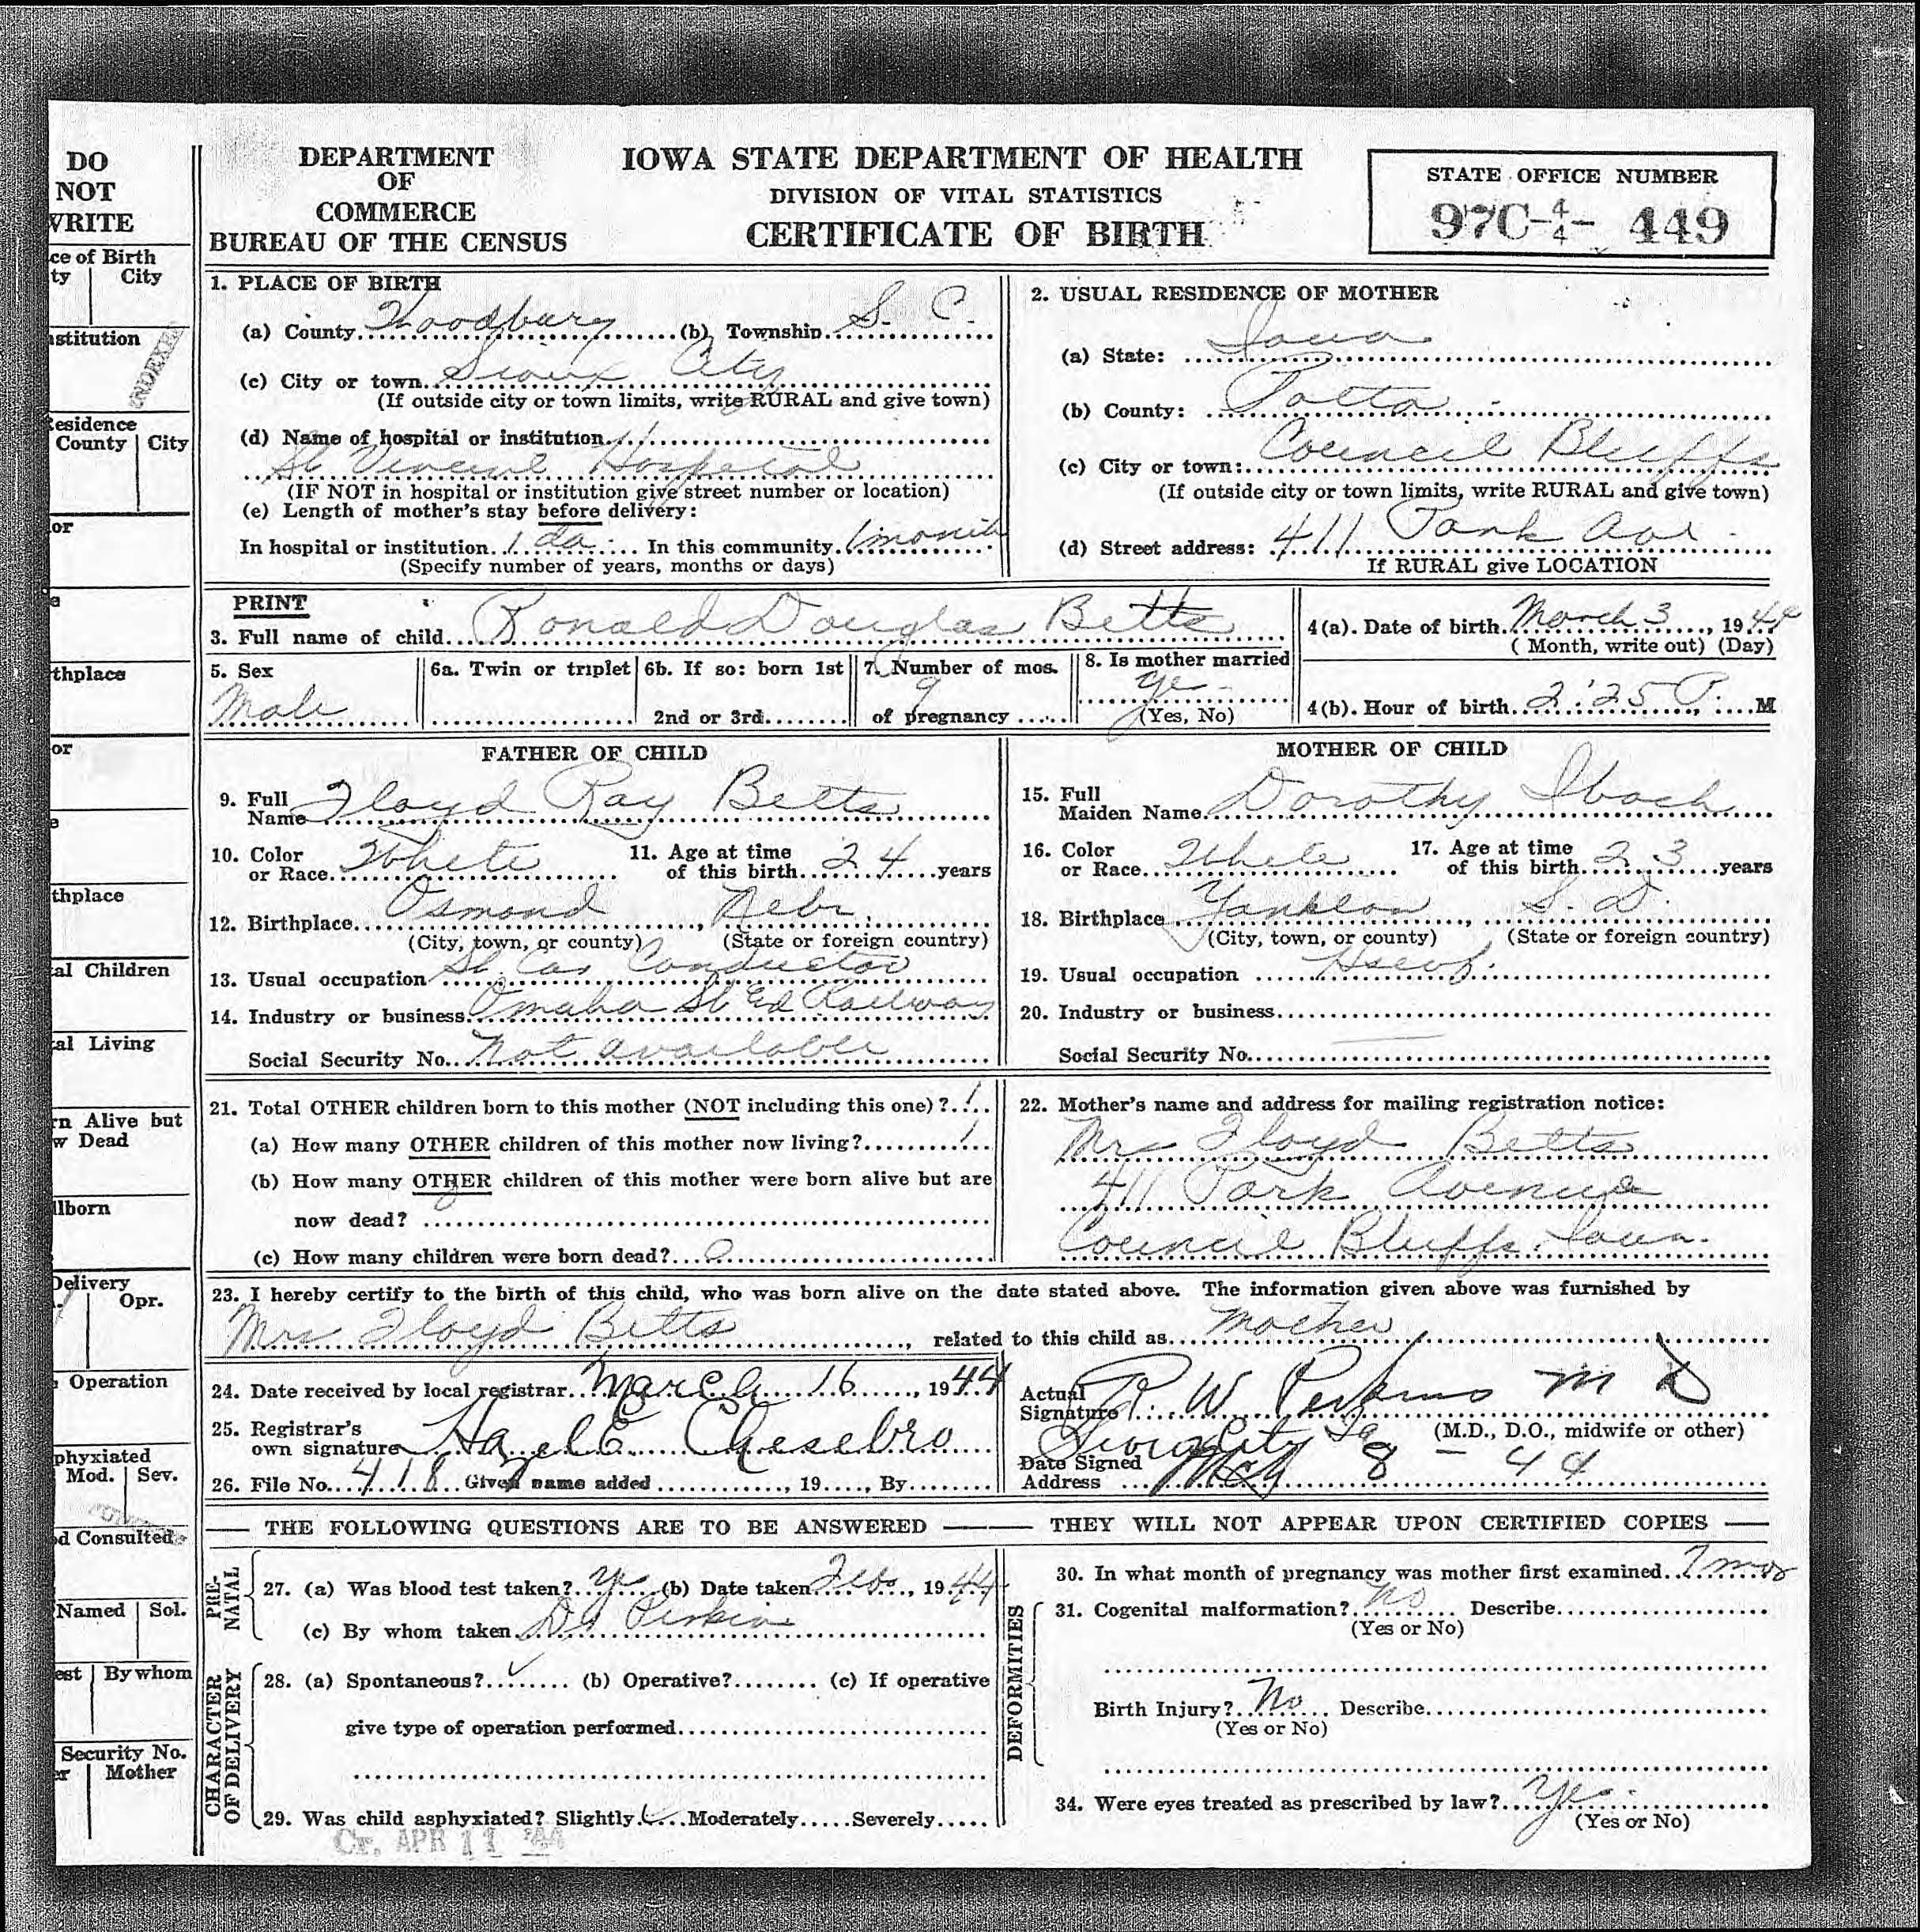 DO
NOT
WRITE
ce of Birth
ty | City
stitution
INDEXE
Residence
County | City
or
e
thplace
or
e
thplace
al Children
al Living
rn Alive but
w Dead
llborn
Delivery
Opr.
Operation
phyxiated
Mod. | Sev.
d Consulted
Named | Sol.
est | By whom
Security No.
er | Mother
DEPARTMENT
OF
COMMERCE
BUREAU OF THE CENSUS
IOWA STATE DEPARTMENT OF HEALTH
DIVISION OF VITAL STATISTICS
CERTIFICATE OF BIRTH
STATE OFFICE NUMBER
97C-4/4- 449
1. PLACE OF BIRTH
(a) County Woodbury (b) Township S. C.
(c) City or town Sioux City
(If outside city or town limits, write RURAL and give town)
(d) Name of hospital or institution
St Vincent Hospital
(IF NOT in hospital or institution give street number or location)
(e) Length of mother's stay before delivery:
In hospital or institution 1 da In this community 1 month
(Specify number of years, months or days)
2. USUAL RESIDENCE OF MOTHER
(a) State: Iowa
(b) County: Potta
(c) City or town: Council Bluffs
(If outside city or town limits, write RURAL and give town)
(d) Street address: 411 Park Ave
If RURAL give LOCATION
PRINT
3. Full name of child Ronald Douglas Betts
4(a). Date of birth March 3, 1944
(Month, write out) (Day)
5. Sex
Male
6a. Twin or triplet
6b. If so: born 1st
2nd or 3rd
7. Number of mos.
of pregnancy 9
8. Is mother married
Yes
(Yes, No)
4(b). Hour of birth 2:25 P. M
FATHER OF CHILD
9. Full
Name Floyd Ray Betts
10. Color
or Race White
11. Age at time
of this birth 24 years
12. Birthplace Osmond, Nebr.
(City, town, or county) (State or foreign country)
13. Usual occupation St. Car Conductor
14. Industry or business Omaha St Railway
Social Security No. Not available
MOTHER OF CHILD
15. Full
Maiden Name Dorothy Ibach
16. Color
or Race White
17. Age at time
of this birth 23 years
18. Birthplace Yankton, S. D.
(City, town, or county) (State or foreign country)
19. Usual occupation Hsewf.
20. Industry or business
Social Security No.
21. Total OTHER children born to this mother (NOT including this one)? 1
(a) How many OTHER children of this mother now living? 1
(b) How many OTHER children of this mother were born alive but are
now dead?
(c) How many children were born dead? 0
22. Mother's name and address for mailing registration notice:
Mrs Floyd Betts
411 Park Avenue
Council Bluffs, Iowa.
23. I hereby certify to the birth of this child, who was born alive on the date stated above. The information given above was furnished by
Mrs Floyd Betts, related to this child as Mother
24. Date received by local registrar March 16, 1944
25. Registrar's
own signature Hazel E Chesebro
26. File No. 418 Given name added , 19 , By
Actual
Signature R. W Perkins M D
Sioux City Ia (M.D., D.O., midwife or other)
Date Signed
Address Mch 8 - 44
THE FOLLOWING QUESTIONS ARE TO BE ANSWERED — THEY WILL NOT APPEAR UPON CERTIFIED COPIES
PRE-
NATAL
27. (a) Was blood test taken? Yes (b) Date taken Feb, 1944
(c) By whom taken Dr Perkins
CHARACTER
OF DELIVERY
28. (a) Spontaneous? ✓ (b) Operative? (c) If operative
give type of operation performed
29. Was child asphyxiated? Slightly ✓ Moderately Severely
Cr. APR 11 '44
DEFORMITIES
30. In what month of pregnancy was mother first examined 7 mos
31. Cogenital malformation? No Describe
(Yes or No)
Birth Injury? No Describe
(Yes or No)
34. Were eyes treated as prescribed by law? Yes
(Yes or No)